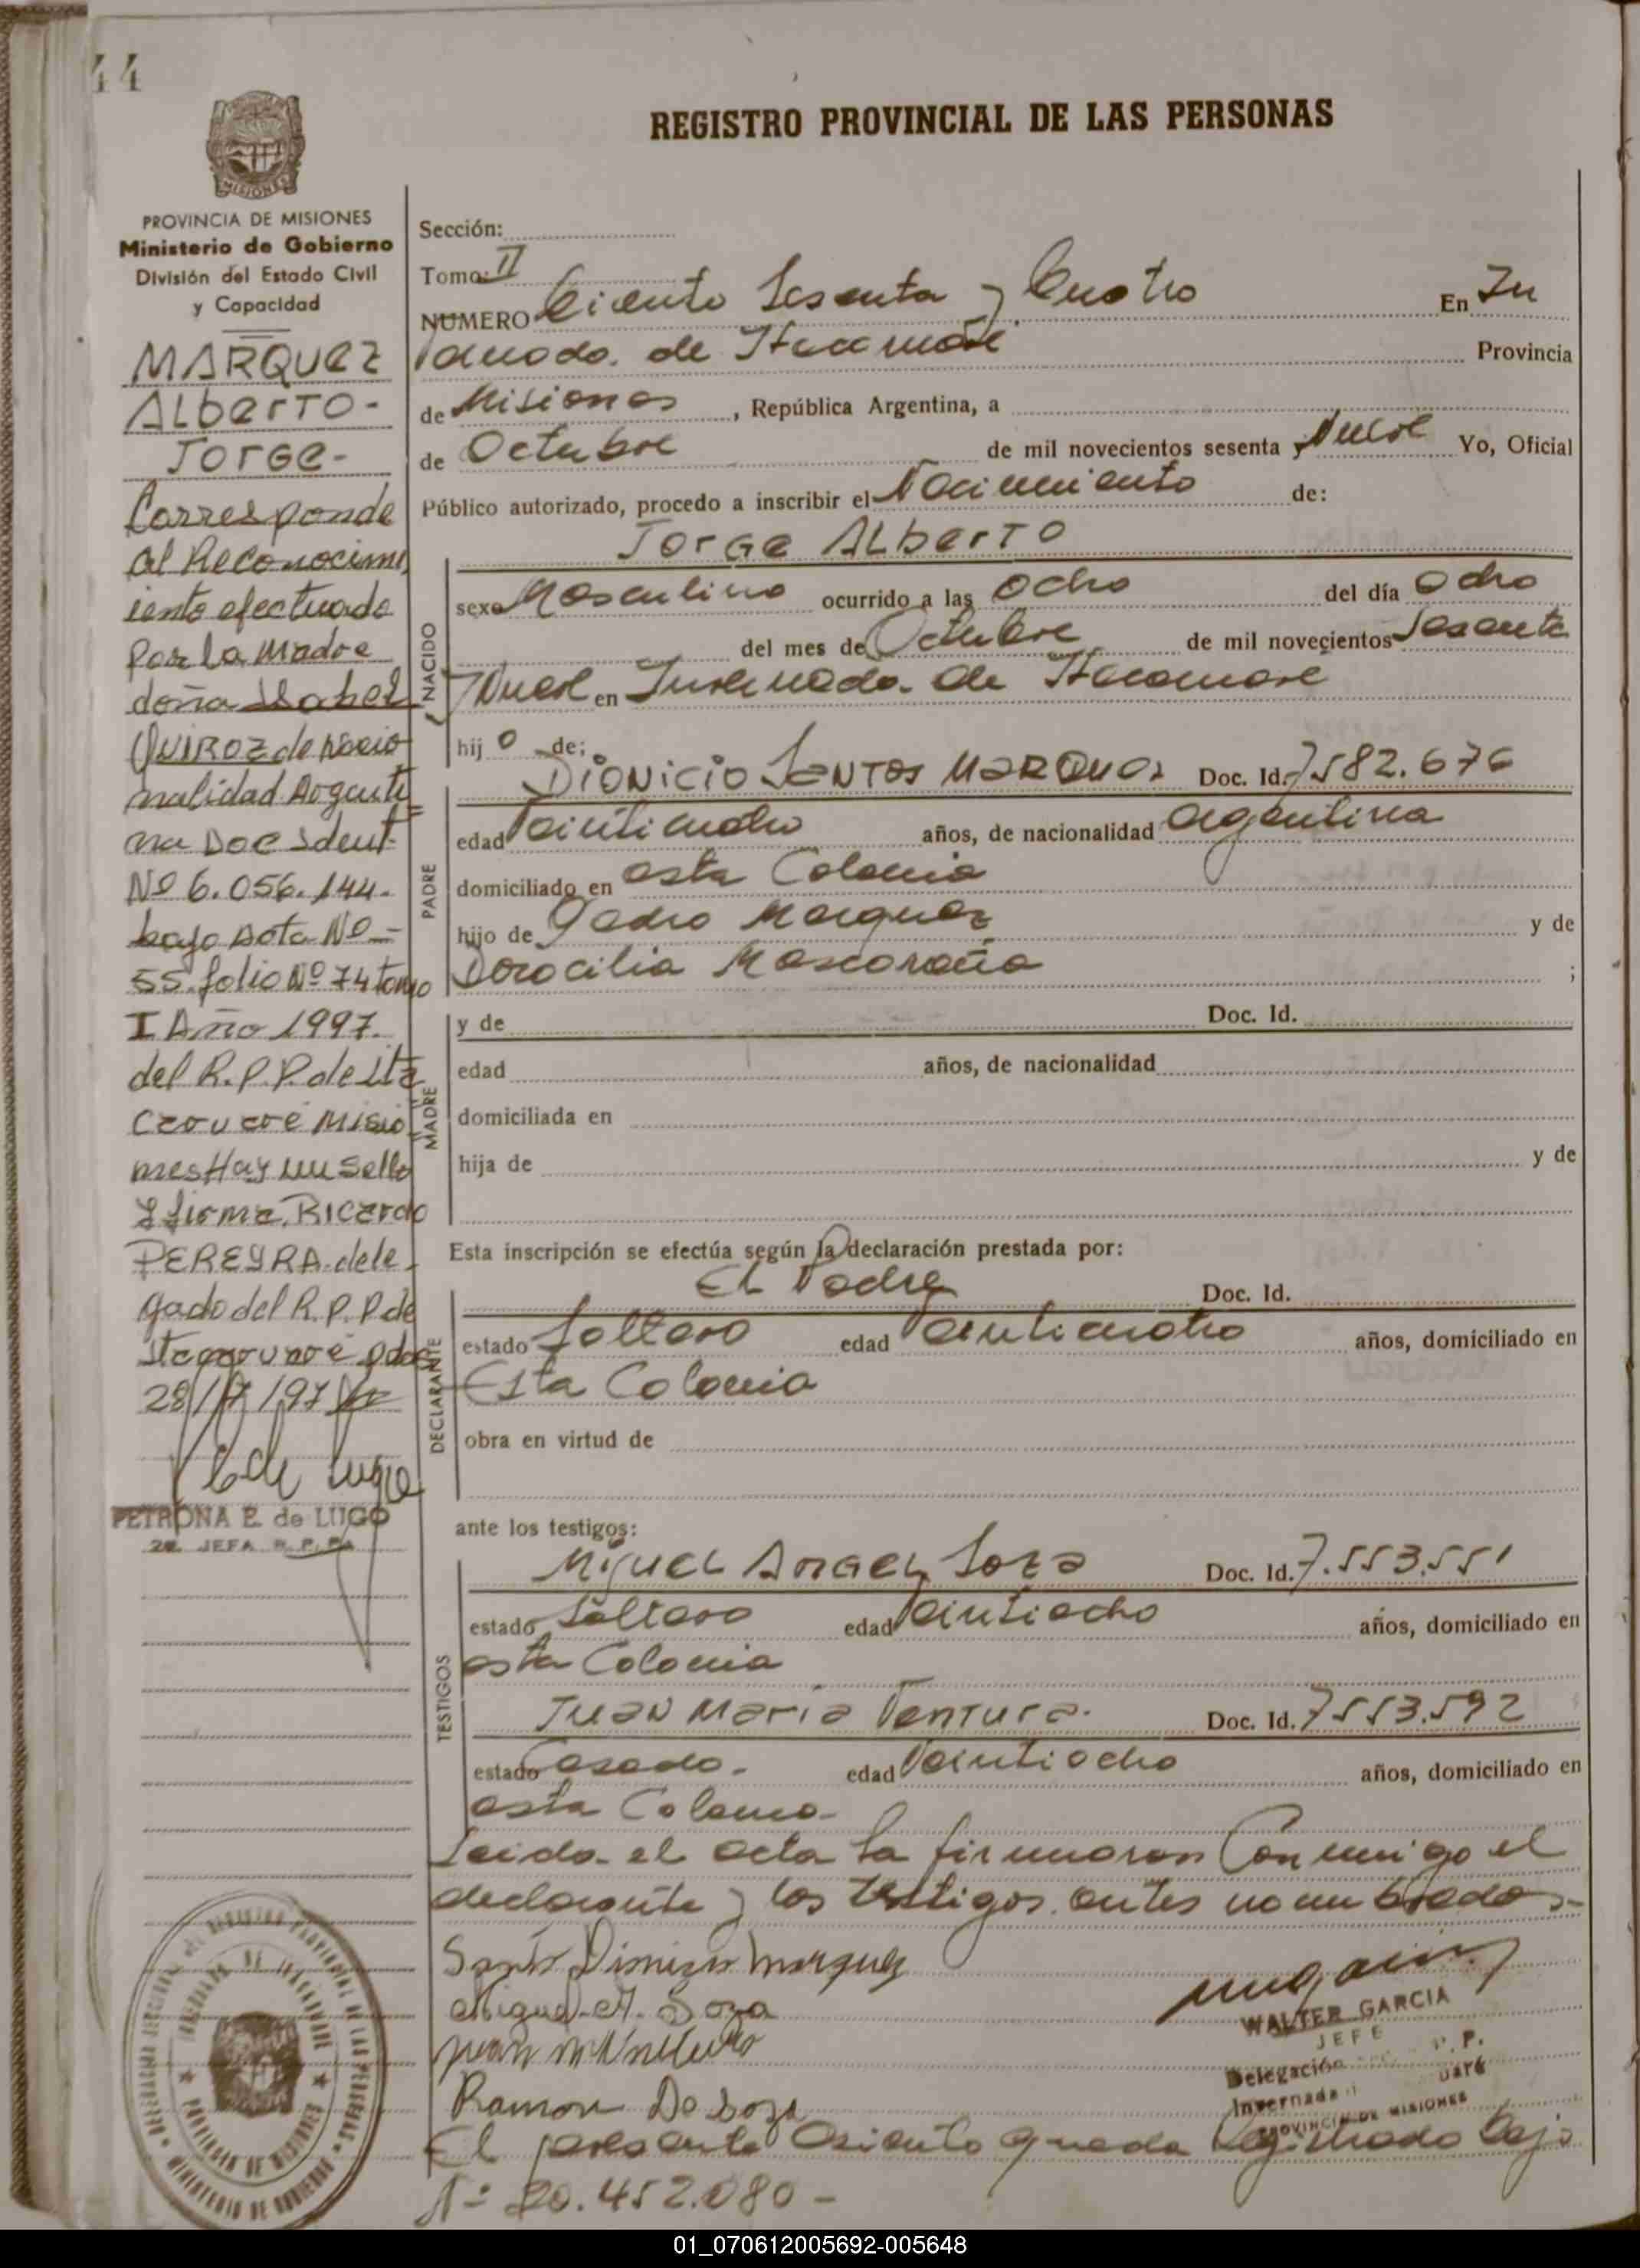 44
REGISTRO PROVINCIAL DE LAS PERSONAS
MISIONES
PROVINCIA DE MISIONES
Ministerio de Gobierno
División del Estado Civil
y Capacidad
MARQUEZ
ALberTO-
JOrGe-
Corresponde
al Reconocimi
iento efectuado
Por La Madre
doña Isabel
QUIROZ de Nacio
nalidad Argenti
na Doc Ident-
Nº 6.056.144.
bajo Acta Nº-
55 folio Nº 74 Tomo
I Año 1997.
del R.P.P. de Ita
caruaré Misio
nes Hay un Sello
y firma, Ricardo
PEREYRA dele
gado del R.P.P de
Itacaruaré
PETRONA E. de LUGO
2ª JEFA R. P. P.
Sección:
Tomo: II
NUMERO Ciento Sesenta y Cuatro En In
vernada de Itacaruaré Provincia
de Misiones, República Argentina, a
de Octubre de mil novecientos sesenta y Nueve Yo, Oficial
Público autorizado, procedo a inscribir el Nacimiento de:
JOrGe ALberTO
NACIDO
sexo Masculino ocurrido a las Ocho del día Ocho
del mes de Octubre de mil novecientos Sesenta
y Nueve en Invernada de Itacaruare
hijo de:
DIONICIO SANTOS MARQUez Doc. Id. 7582.676
PADRE
edad Veinticuatro años, de nacionalidad Argentina
domiciliado en esta Colonia
hijo de Pedro Marquez y de
Dorocilia Mascoraña ;
MADRE
y de Doc. Id.
edad años, de nacionalidad
domiciliada en
hija de y de
Esta inscripción se efectúa según la declaración prestada por:
El Padre Doc. Id.
DECLARANTE
estado Soltero edad Veinticuatro años, domiciliado en
Esta Colonia
obra en virtud de
ante los testigos:
TESTIGOS
Miguel Angel Soza Doc. Id. 7.553.551
estado Soltero edad Veintiocho años, domiciliado en
esta Colonia
Juan Maria Ventura. Doc. Id. 7553.592
estado Casado. edad Veintiocho años, domiciliado en
esta Colonia-
Leida el acta la firmaron Conmigo el
declarante y los testigos antes nombrados-
Santos Dionicio Marquez
Miguel A. Soza
Juan M Ventura
Ramon De Soza
WALTER GARCIA
JEFE
Delegación P. P.
Invernada I uaré
PROVINCIA DE MISIONES
El presente Asiento queda Registrado bajo
Nº 20.452.080-
01_070612005692-005648